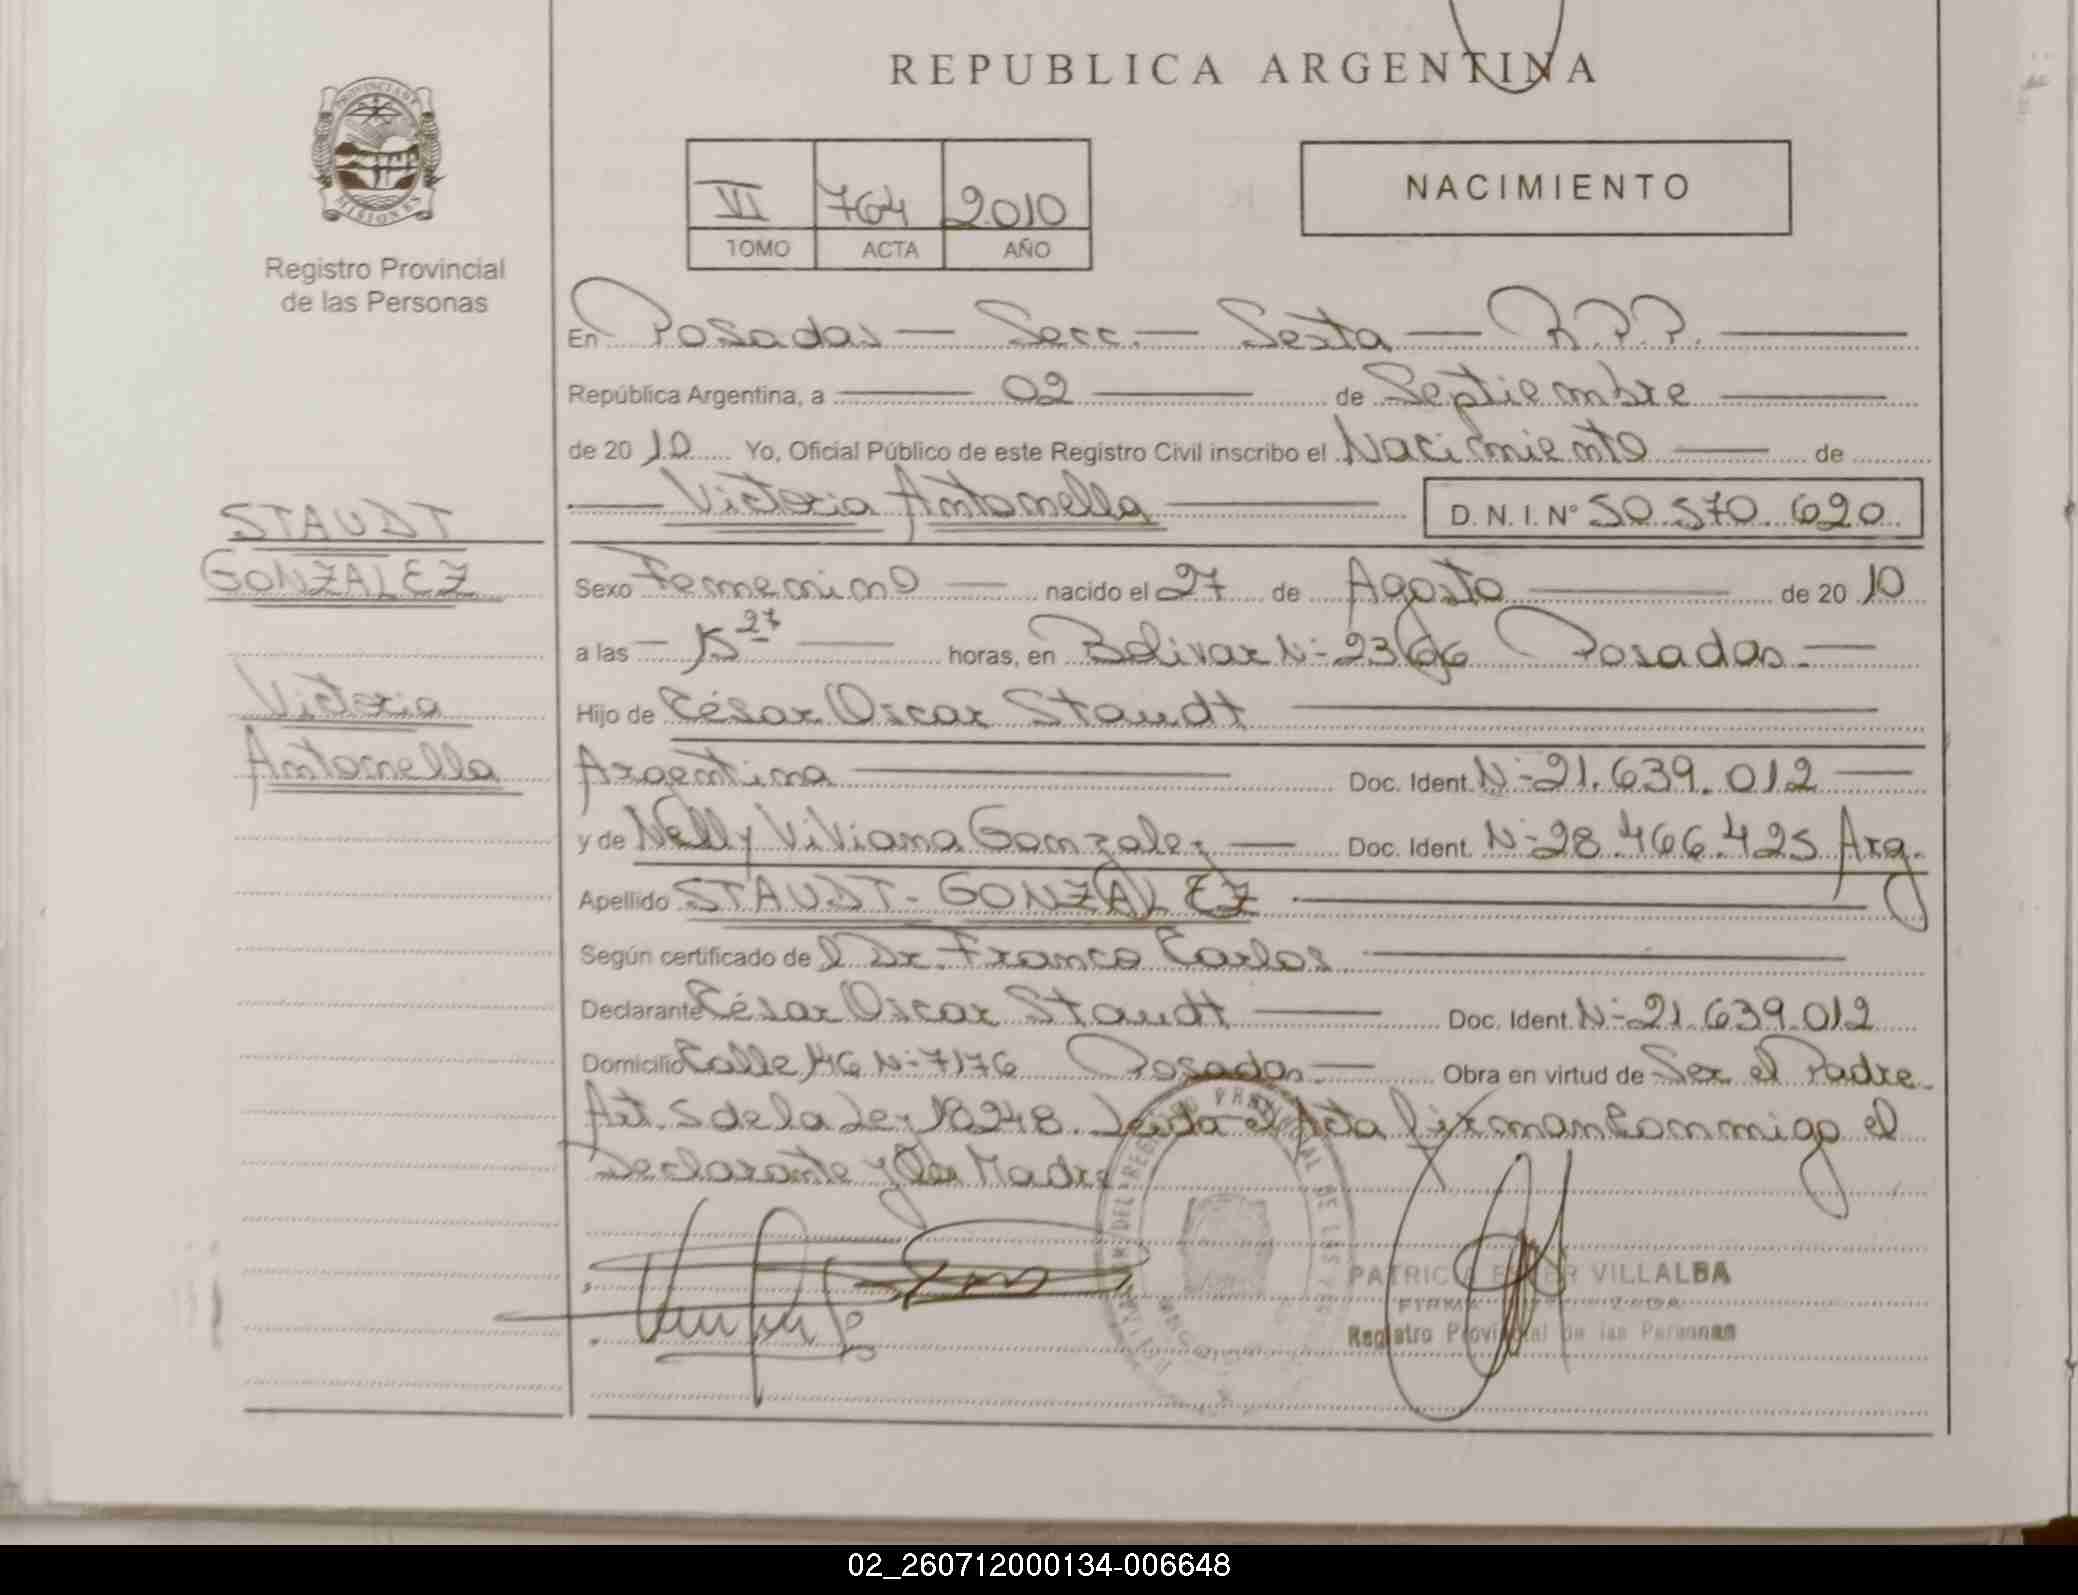 REPUBLICA ARGENTINA
PROVINCIA DE
MISIONES
Registro Provincial
de las Personas
VI 764 2010
TOMO ACTA AÑO
NACIMIENTO
En Posadas — Secc. — Sexta — R.P.P. —
República Argentina, a — 02 — de Septiembre —
de 2010 Yo, Oficial Público de este Registro Civil inscribo el Nacimiento — de
— Victoria Antonella — D. N. I. N° 50.570.620
STAUDT
GONZALEZ
Victoria
Antonella
Sexo Femenino — nacido el 27 de Agosto — de 2010
a las — 15 27 — horas, en Bolivar N- 2366 Posadas. —
Hijo de César Oscar Staudt —
Argentina — Doc. Ident. N-21.639.012 —
y de Nelly Viviana Gonzalez — Doc. Ident. N-28.466.425 Arg.
Apellido STAUDT - GONZALEZ —
Según certificado de l Dr. Franco Carlos —
Declarante César Oscar Staudt — Doc. Ident. N-21.639.012
Domicilio Calle 146 N-7176 Posadas. — Obra en virtud de Ser el Padre.
Art. 5 de la Ley 18248. Leida el Acta firman Conmigo el
Declarante y la Madre
PATRICIA ESTER VILLALBA
FIRMA AUTORIZADA
Registro Provincial de las Personas
02_260712000134-006648